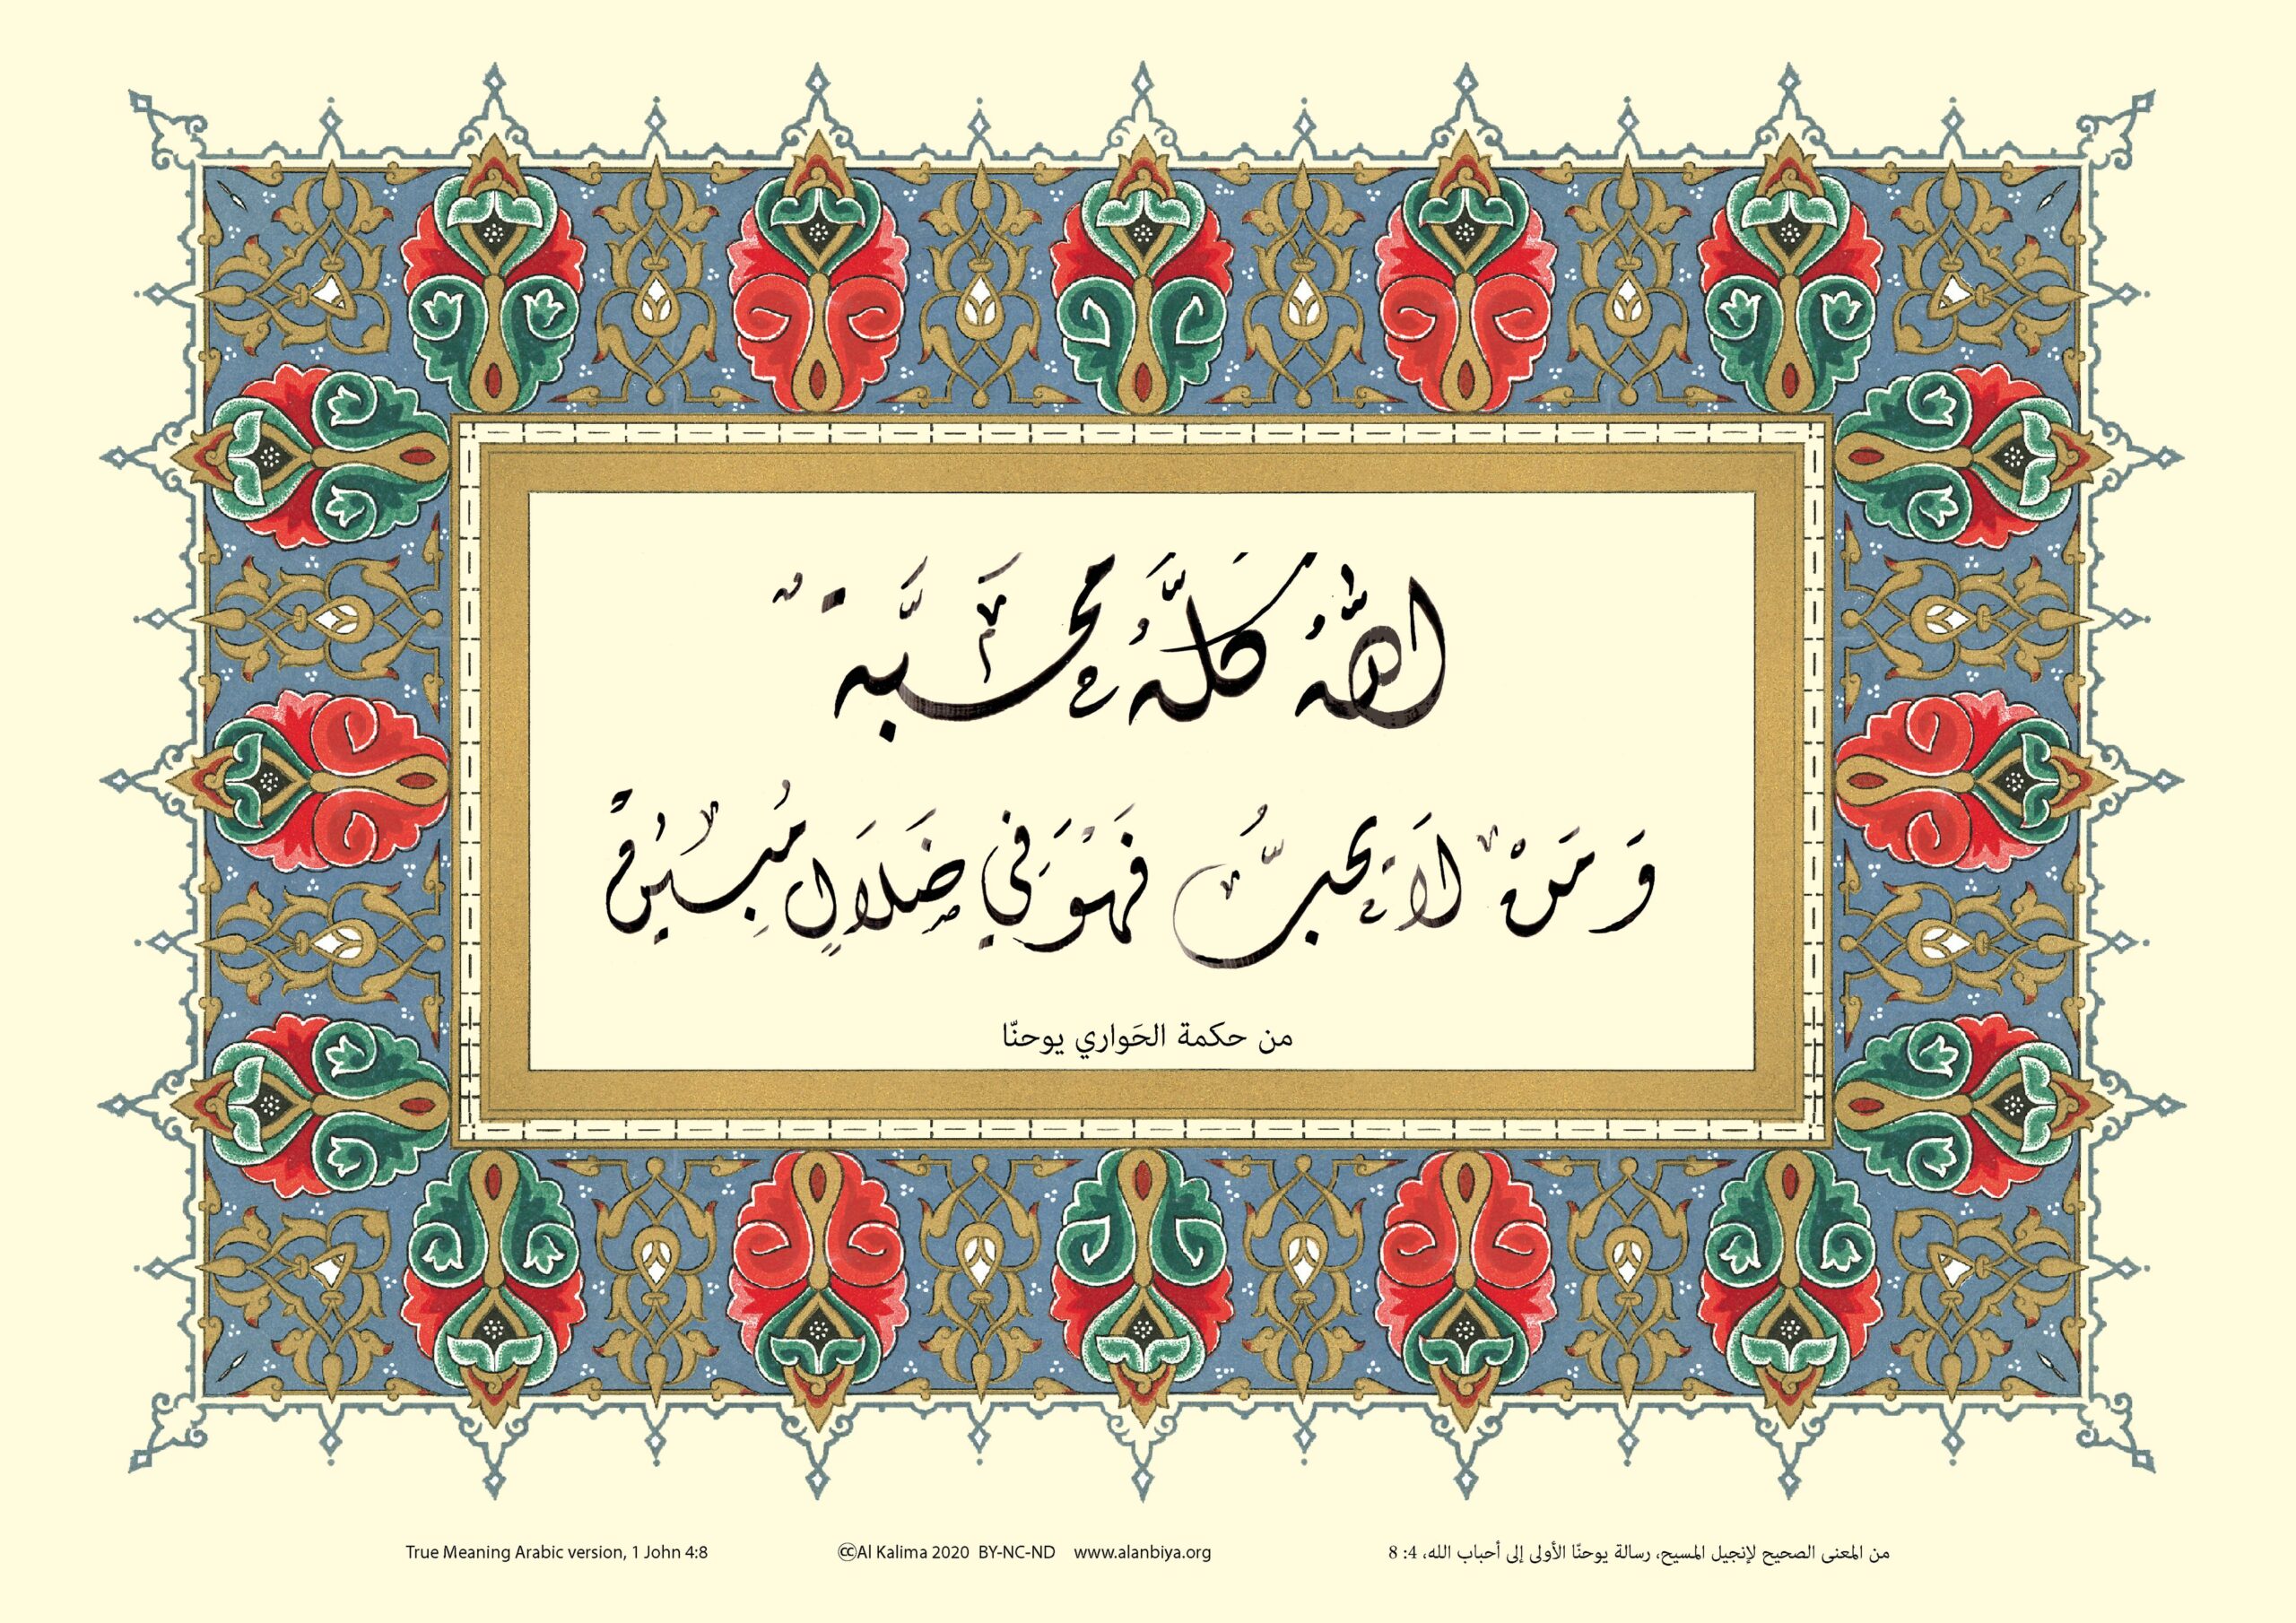 اللّٰهُ كُلُّهُ مَحَبَّةٌ
وَمَنْ لَا يُحِبُّ فَهُوَ فِي ضَلَالٍ مُبِينٍ
من حكمة الحَواري يوحنّا
True Meaning Arabic version, 1 John 4:8
🅭Al Kalima 2020 BY-NC-ND www.alanbiya.org
من المعنى الصحيح لإنجيل المسيح، رسالة يوحنّا الأولى إلى أحباب الله، 4: 8